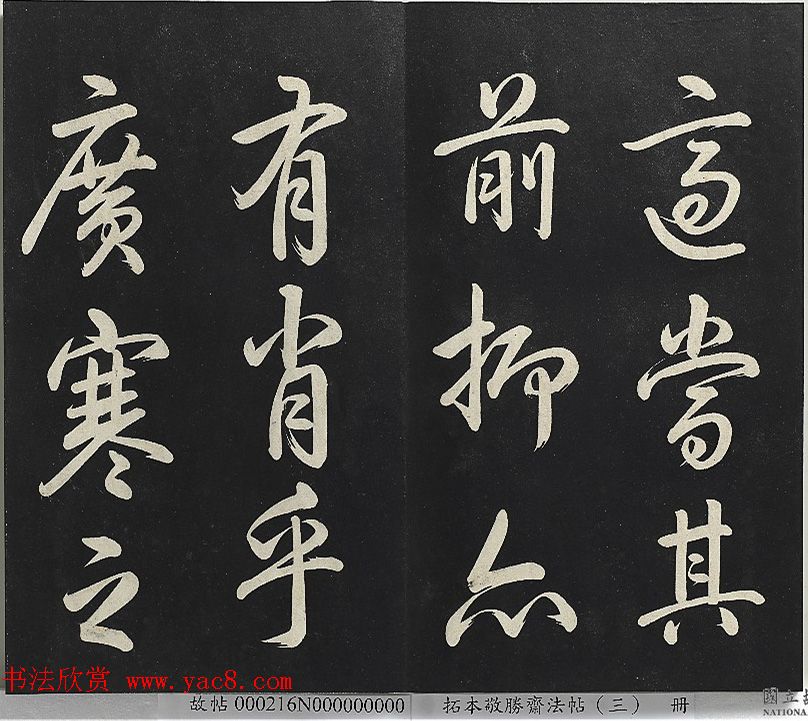 適當其
前抑亦
有肖乎
廣寒之
书法欣赏 www.yac8.com
故帖 000216N000000000
拓本敬勝齋法帖（三） 册
國立
NATIONA